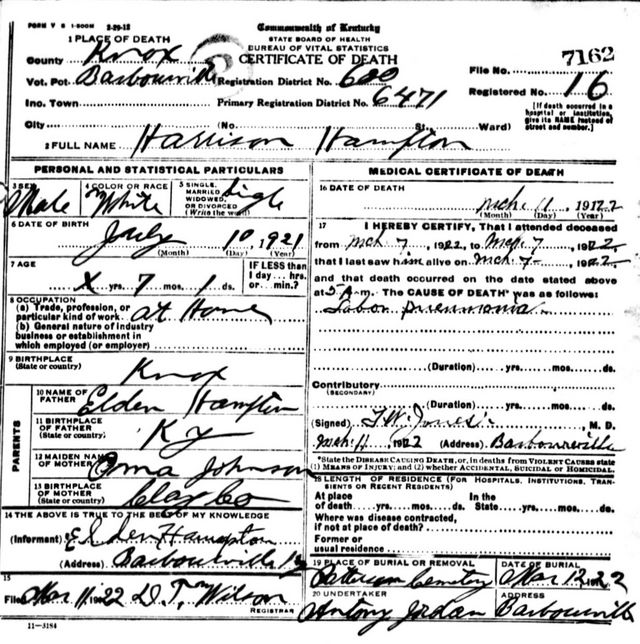 FORM V S 1-500M 2-29-12
Commonwealth of Kentucky
STATE BOARD OF HEALTH
BUREAU OF VITAL STATISTICS
CERTIFICATE OF DEATH
1 PLACE OF DEATH
County Knox
Vot. Pct. Barbourville Registration District No. 600
Inc. Town Primary Registration District No. 6471
City (No. St. Ward)
File No. 7162
Registered No. 16
[If death occurred in a hospital or institution, give its NAME instead of street and number.]
2 FULL NAME Harrison Hampton
PERSONAL AND STATISTICAL PARTICULARS
3 SEX Male
4 COLOR OR RACE White
5 SINGLE, MARRIED, WIDOWED, OR DIVORCED (Write the word) Sigle
6 DATE OF BIRTH July 10, 1921
(Month) (Day) (Year)
7 AGE X yrs. 7 mos. 1 ds.
IF LESS than 1 day... hrs. or min.?
8 OCCUPATION
(a) Trade, profession, or particular kind of work at Home
(b) General nature of Industry business or establishment in which employed (or employer)
9 BIRTHPLACE
(State or country) Knox
PARENTS
10 NAME OF FATHER Elden Hampton
11 BIRTHPLACE OF FATHER
(State or country) Ky
12 MAIDEN NAME OF MOTHER Johnson
13 BIRTHPLACE OF MOTHER
(State or country) Clay Co
14 THE ABOVE IS TRUE TO THE BEST OF MY KNOWLEDGE
(Informant) Elden Hampton
(Address) Barbourville Ky
15
Filed Mar 11 1922 D. T. Wilson
REGISTRAR
11-3184
MEDICAL CERTIFICATE OF DEATH
16 DATE OF DEATH
Mch 11, 1922
(Month) (Day) (Year)
17 I HEREBY CERTIFY, That I attended deceased
from Mch 7, 1922 to Mch 7, 1922
that I last saw him alive on Mch 7, 1922
and that death occurred on the date stated above
at 5 A.m. The CAUSE OF DEATH* was as follows:
Lobar pneumonia
(Duration) yrs. mos. ds.
Contributory
(SECONDARY)
(Duration) yrs. mos. ds.
(Signed) Jones, M. D.
Mch 11, 1922 (Address) Barbourville
*State the DISEASE CAUSING DEATH, or, in deaths from VIOLENT CAUSES state (1) MEANS OF INJURY; and (2) whether ACCIDENTAL, SUICIDAL or HOMICIDAL.
18 LENGTH OF RESIDENCE (FOR HOSPITALS, INSTITUTIONS, TRANSIENTS OR RECENT RESIDENTS)
At place of death yrs. mos. ds. In the State yrs. mos. ds.
Where was disease contracted,
if not at place of death?
Former or
usual residence
19 PLACE OF BURIAL OR REMOVAL Cemetery
DATE OF BURIAL Mar 12, 1922
20 UNDERTAKER Antony Jordan
ADDRESS Barbourville